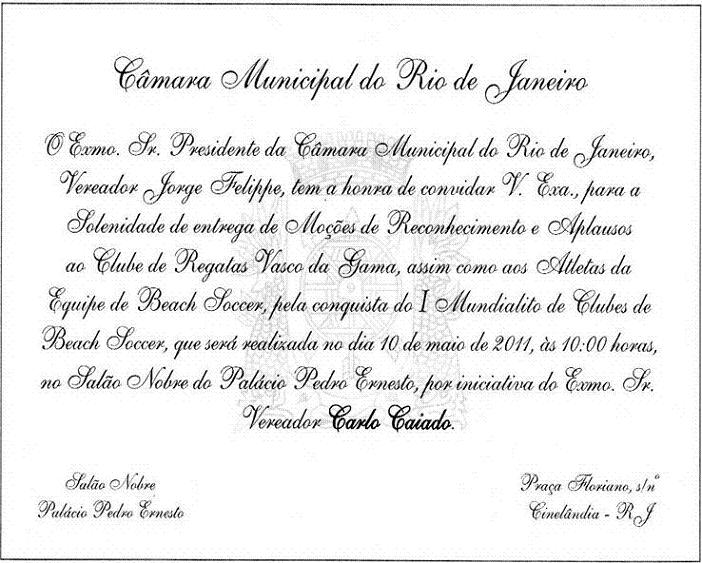 Câmara Municipal do Rio de Janeiro
O Exmo. Sr. Presidente da Câmara Municipal do Rio de Janeiro,
Vereador Jorge Felippe, tem a honra de convidar V. Exa., para a
Solenidade de entrega de Moções de Reconhecimento e Aplausos
ao Clube de Regatas Vasco da Gama, assim como aos Atletas da
Equipe de Beach Soccer, pela conquista do I Mundialito de Clubes de
Beach Soccer, que será realizada no dia 10 de maio de 2011, às 10:00 horas,
no Salão Nobre do Palácio Pedro Ernesto, por iniciativa do Exmo. Sr.
Vereador Carlo Caiado.
Salão Nobre
Palácio Pedro Ernesto
Praça Floriano, s/nº
Cinelândia - RJ